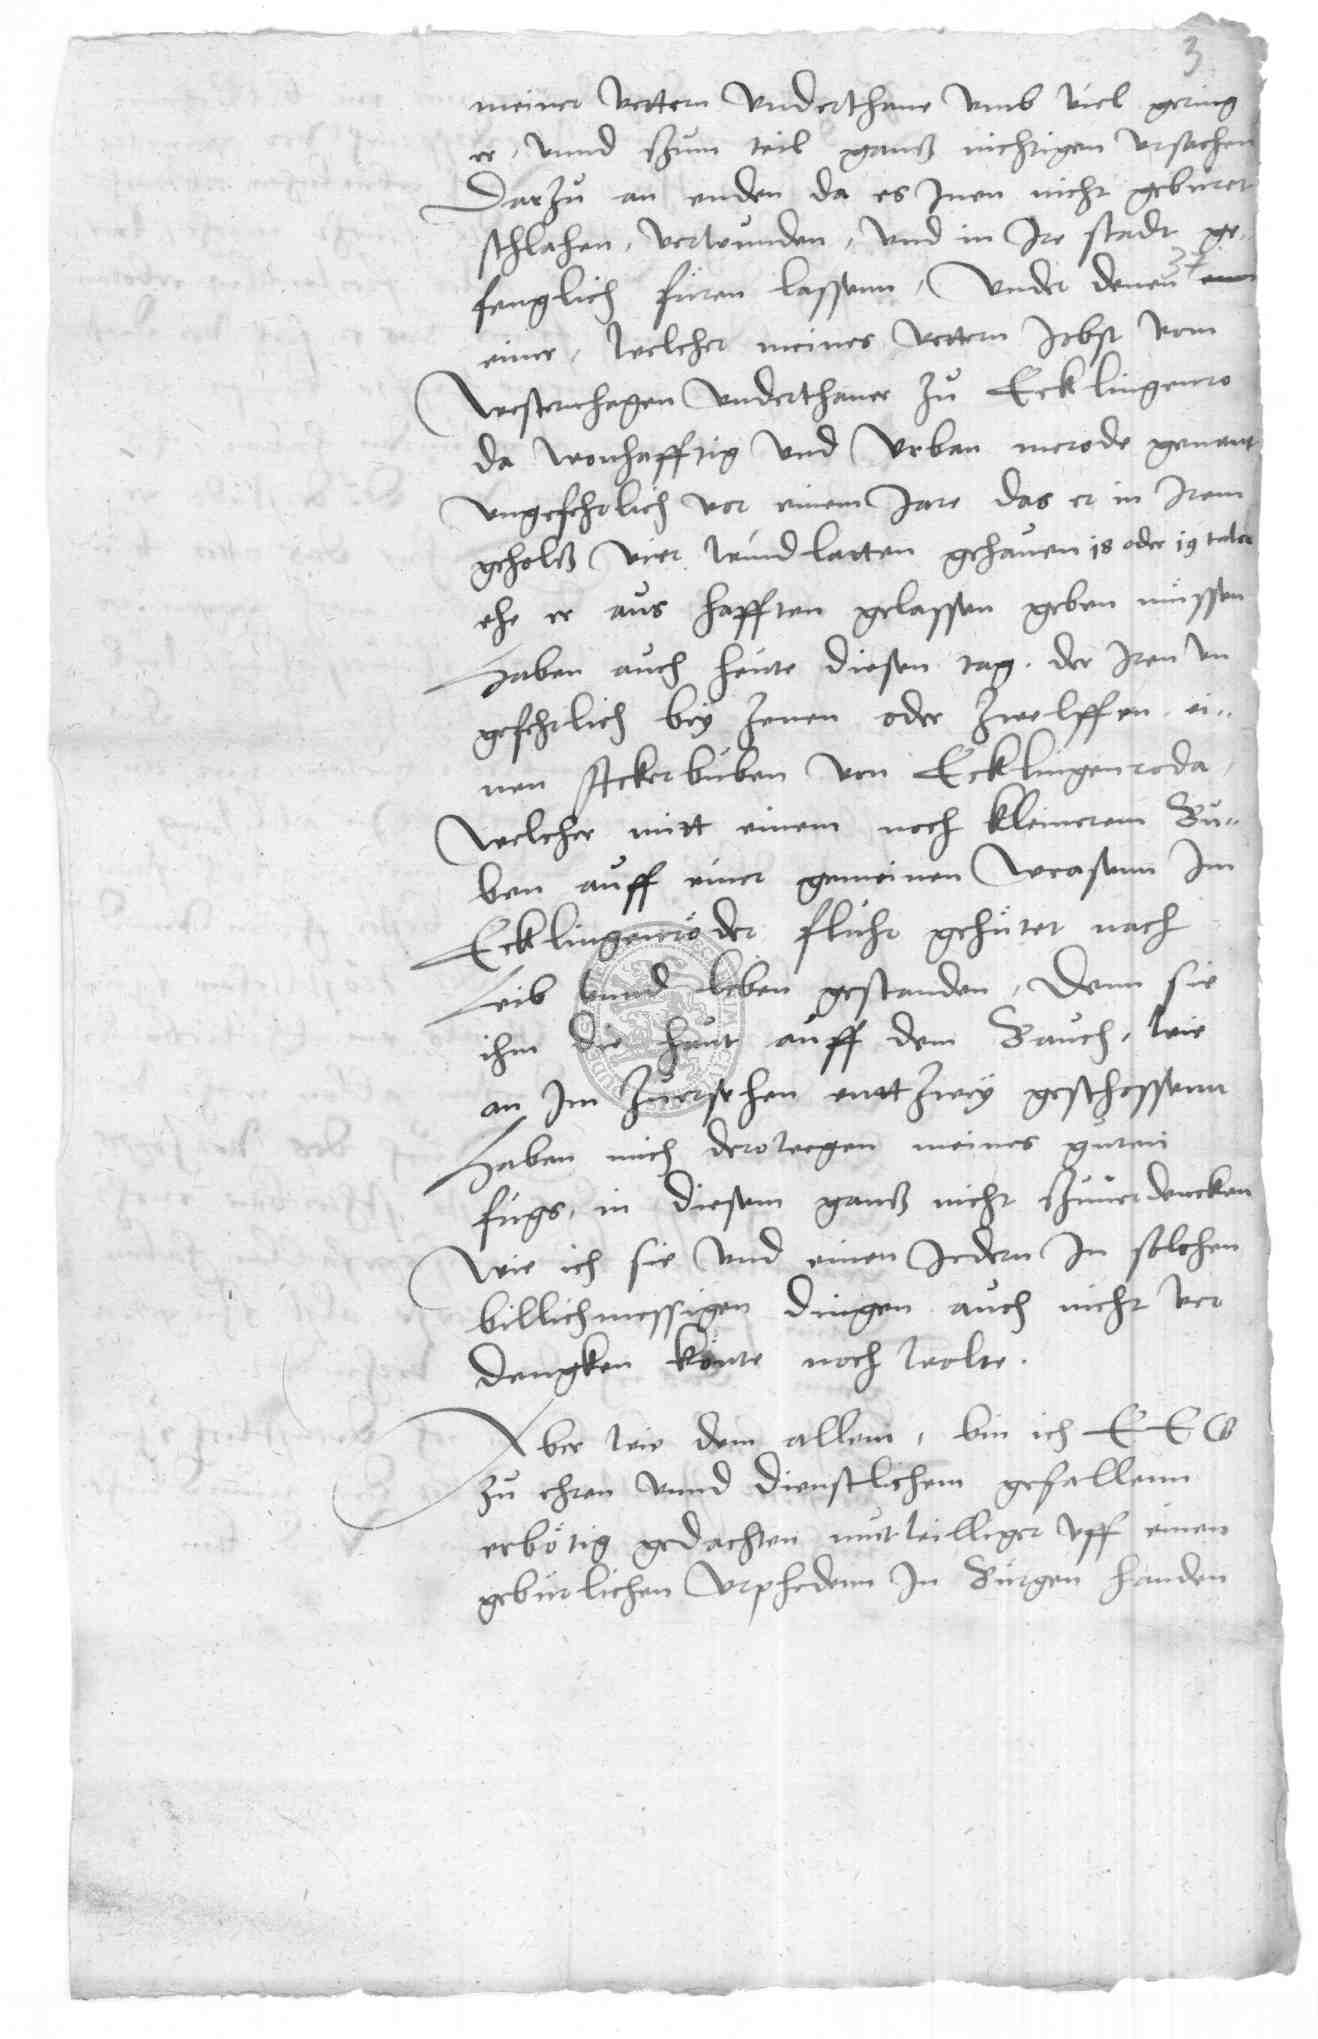 3
meiner vettern vnderthane vmb viel gering
er, vnnd szum teil gantz nichtigen vrsachen
Darzu an enden da es Inen nicht geburet
schlahen, verwunden, vnd in Ire stadt ge„
fenglich füren lassenn, Vnder denen
einer, welcher meines vettern Jobst vom
Westernhagen vnderthaner zu Ecklingenro
da wonhafftig vnd Vrban merode genant
vngefehrlich vor einem Jare das er in Irem
geholtz vier windlatten gehauen 18 oder 19 taler
ehe er aus hafften gelassen geben müssen
Haben auch heute diesen tag. der Iren vn
gefehrlich bey zenen oder zwelffen ei„
nen Ackerbuben von Ecklingenroda,
welcher mitt einem noch kleinerem Bu„
ben auff einer gemeinen Wrasenn Im
Ecklingenröder fluhr gehütet nach
Leib vnnd leben gestanden, Denn sie
ihm die haut auff dem Bauch, wie
an Im zuersehen enttzwey geschossenn
Haben mich derowegen meines guten
fugs, in diesem gantz nicht szuuerdencken
wie ich sie vnd einen Jedern In solchen
billichmessigen dingen auch nicht ver
dengken könte noch wolte.
Aber wie dem allem, bin ich E E W
zu ehren vnnd dienstlichem gefallenn
erbötig gedachten mutwilliger vff einen
gebürlichen Vrphedenn In Bürgen handen